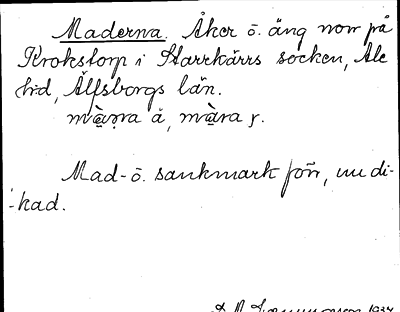 Maderna. Åker o. äng norr på
Krokstorp i Starrkärrs socken, Ale
hd, Älfsborgs län.
Mad- o. sankmark förr, nu di-
kad.